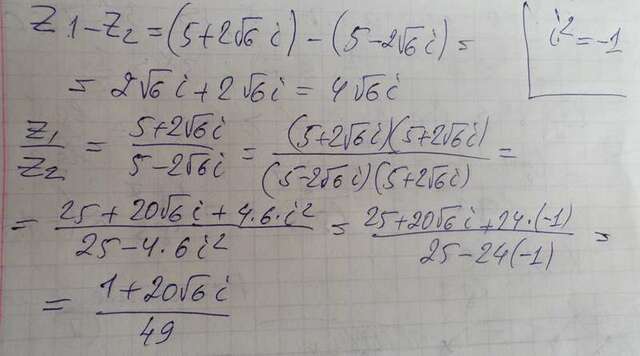 Z1-Z2 = (5+2√6 i) - (5-2√6 i) =
i² = -1
= 2√6 i + 2√6 i = 4√6 i
Z1/Z2 = (5+2√6 i)/(5-2√6 i) = ((5+2√6 i)(5+2√6 i))/((5-2√6 i)(5+2√6 i)) =
= (25+20√6 i+4·6·i²)/(25-4·6i²) = (25+20√6 i+24·(-1))/(25-24(-1)) =
= (1+20√6 i)/49